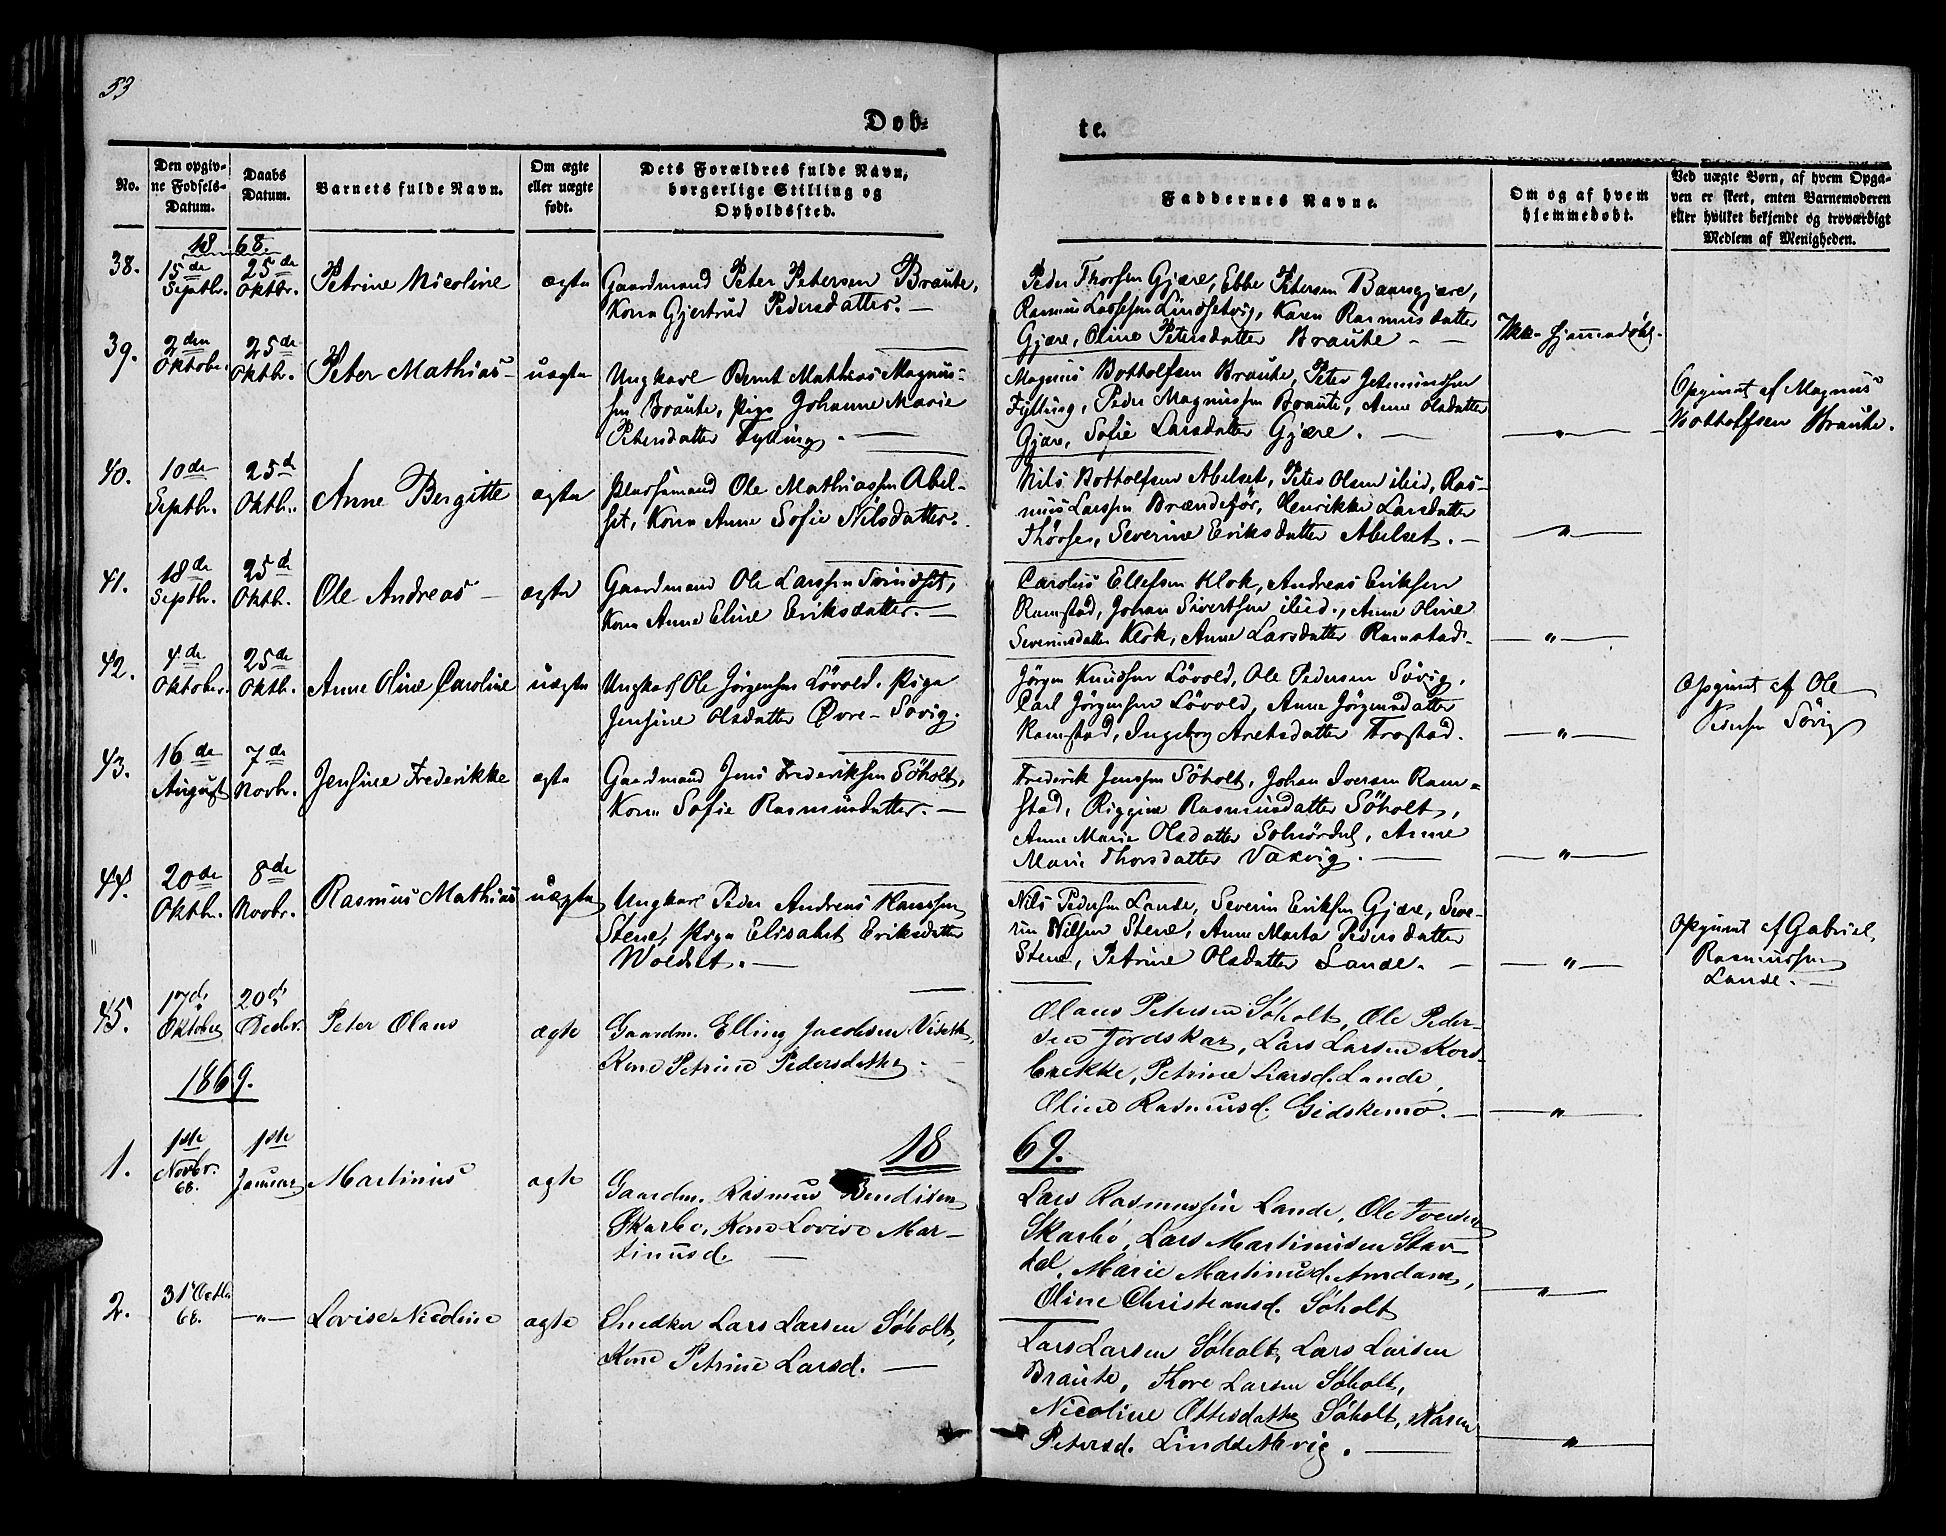 53
Døb-
te.
No.
Den opgiv-
ne Fødsels-
Datum.
Daabs
Datum.
Barnets fulde Navn.
Om ægte
eller uægte
født.
Dets Forældres fulde Navn,
borgerlige Stilling og
Opholdssted.
Faddernes Navne.
Om og af hvem
hjemmedøbt.
Ved uægte Børn, af hvem Opga-
ven er skeet, enten Barnemoderen
eller hvilket bekjendt og troværdigt
Medlem af Menigheden.
18 68.
38.
15de
Septbr.
25de
Oktbr.
Petrine Nicoline
ægte
Gaardmand Peter Petersen Braute,
Kone Gjertrud Pedersdatter. —
Peder Thorsen Gjære, Ebbe Petersen Baansgjære,
Rasmus Lassesen Lindsetvig, Karen Rasmusdatter
Gjære, Oline Petersdatter Braute — —
Ikke hjemmedøbt.
39.
2den
Oktober.
25de
Oktbr.
Peter Mathias —
uægte
Ungkarl Bernt Mathias Magnus-
sen Braute, Pige Johanne Marie
Petersdatter Fylling. —
Magnus Bottolfsen Braute, Peter Jetmundsen
Fylling, Peder Magnussen Braute, Anne Olsdatter
Gjære, Sofie Larsdatter Gjære. —
— " —
Opgivet af Magnus
Bottolfsen Braute.
40.
10de
Septbr.
25d
Oktbr.
Anne Bergitte
ægte
Pladsemand Ole Mathiassen Abel-
set, Kone Anne Sofie Nilsdatter.
Nils Bottolfsen Abelset, Peter Olsen ibid, Ras-
mus Larssen Brændefør, Henrikke Larsdatter
Severine Eriksdatter Abelset. —
— " —
41.
18de
Septbr.
25de
Oktbr.
Ole Andreas —
ægte
Gaardmand Ole Larssen
Kone Anne Eline Eriksdatter. —
Carolus Ellefsen Klok, Andreas Eriksen
Ramstad, Johan Sivertsen ibid., Anne Oline
Severinsdatter Klok, Anne Larsdatter Ramstad.
— " —
42.
4de
Oktober.
25de
Oktb.
Anne Oline Caroline
uægte
Ungkarl Ole Jørgensen Løvold, Pige
Jensine Olsdatter Øvre-Søvig.
Jørgen Knudsen Løvold, Ole Pedersen Søvig,
Carl Jørgensen Løvold, Anne Jørgensdatter
Ramstad, Ingeborg Aretsdatter Frostad.
— " —
Opgivet af Ole
Pedersen Søvig
43.
16de
August
7de
Novbr.
Jensine Frederikke
ægte
Gaardmand Jens Frederiksen Søholt,
Kone Sofie Rasmusdatter. —
Frederik Jenssen Søholt, Johan Iversen Ram-
stad, Riggine Rasmusdatter Søholt,
Anne Marie Olsdatter Solnørdal, Anne
Marie Thorsdatter Vaxvig. —
— " —
44.
20de
Oktbr.
8de
Novbr.
Rasmus Mathias
uægte
Ungkarl Peder Andreas Hanssen
Stene, Pige Elisabet Eriksdatter
Woldset. —
Nils Pedersen Lande, Severin Eriksen Gjære, Seve-
rin Nilsen Stene, Anne Marta Pedersdatter
Stene, Petrine Olsdatter Lande. —
— " —
Opgivet af Gabriel
Rasmussen
Lande. —
45.
17de
Oktober
20de
Decbr.
Peter Olaus
ægte
Gaardm. Elling Jacobsen Viseth,
Kone Petrine Pedersdatter. —
Olaus Petersen Søholt, Ole Peder-
sen Fjordskar, Lars Larsen Kors-
brekke, Petrine Larsd. Lande,
Oline Rasmusd. Gidskemo. —
— " —
1869.
18 69.
1.
1ste
Novbr.
68.
1ste
Januar
Martinus
ægte
Gaardm. Rasmus Bendixen
Skarbø, Kone Lovise Mar-
tinusd. —
Lars Rasmussen Lande, Ole Iversen
Skarbø, Lars Martinusen Stav-
dal, Marie Martinusd. Amdam,
Oline Christiansd. Søholt
— " —
2.
31 Octb.
68.
— " —
Lovise Nicoline
ægte
Snedker Lars Larsen Søholt,
Kone Petrine Larsd. —
Lars Larsen Søholt, Lars Larsen
Braute, Thore Larsen Søholt,
Nicoline Ottesdatter Søholt, Karen
Petersd. Lindsethvig. —
— " —